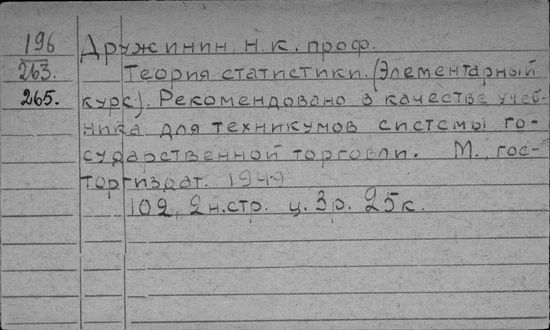 196 Дружинин, Н.К. проф.
263. Теория статистики. (Элементарный
265. курс). Рекомендовано в качестве учеб-
ника для техникумов системы го-
сударственной торговли. М., гос-
торгиздат. 1949
102, 2 н.стр. ц. 3р. 25к.